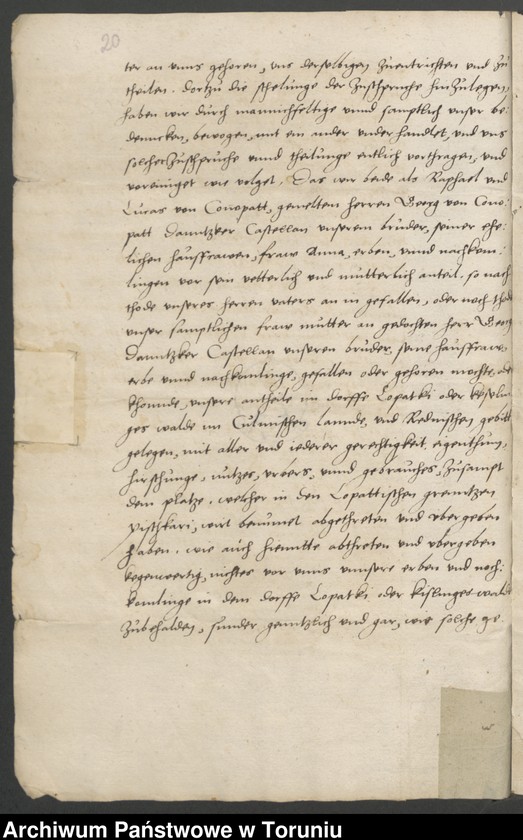 20
ter an unns gehoren, uns derselbigen zuentrichten und zu
theilen. dortzu die schelunge der Zusspruche hinzulegen,
haben wir durch mannichfeltige unnd samptlich unser be,
dencken, bewogen, mit ein ander underhandlet, und uns
solcher Zusspruche unnd theilunge entlich vortragen, und
voreiniget wie volget. Das wir beide als Raphael und
Lucas von Conopatt, gemelten herren Georg von Cono,
patt Dantzker Castellan unserem bruder, seiner ehe,
lichen haussfrawen, fraw Anna, erben, unnd nachkom,
lingen vor sein vetterlich und mutterlich anteil, so nach
thode unseres herren vaters an in gefallen, oder noch thode
unser samptlichen fraw mutter an gedochten herr Georg
Dantzker Castellan unseren bruder, seine haussfraw,
erbe unnd nachkomlinge, gefallen oder gehoren mochte, oder
khonnde, unsere antheile im dorffe Lopatki oder
ges walde im Culmischen lannde, und Rednischen gebitt
gelegen, mit aller und iederer gerechtigkeit, eigenthum,
hirschunge, nutzes, urbers, unnd gebrauches, Zusampt
dem platze, welcher in den Lopattischen grenitzen
wirt benumet abgethreten und ubergeben
haben. wie auch hiemitte abthreten und ubergeben
kegenwertig, nichtes vor unns unnsere erben und noch,
komlinge in dem dorffe Lopatki oder Kislinges walde
zubehalden, sunder gentzlich und gar, wie solche ge,
Archiwum Państwowe w Toruniu